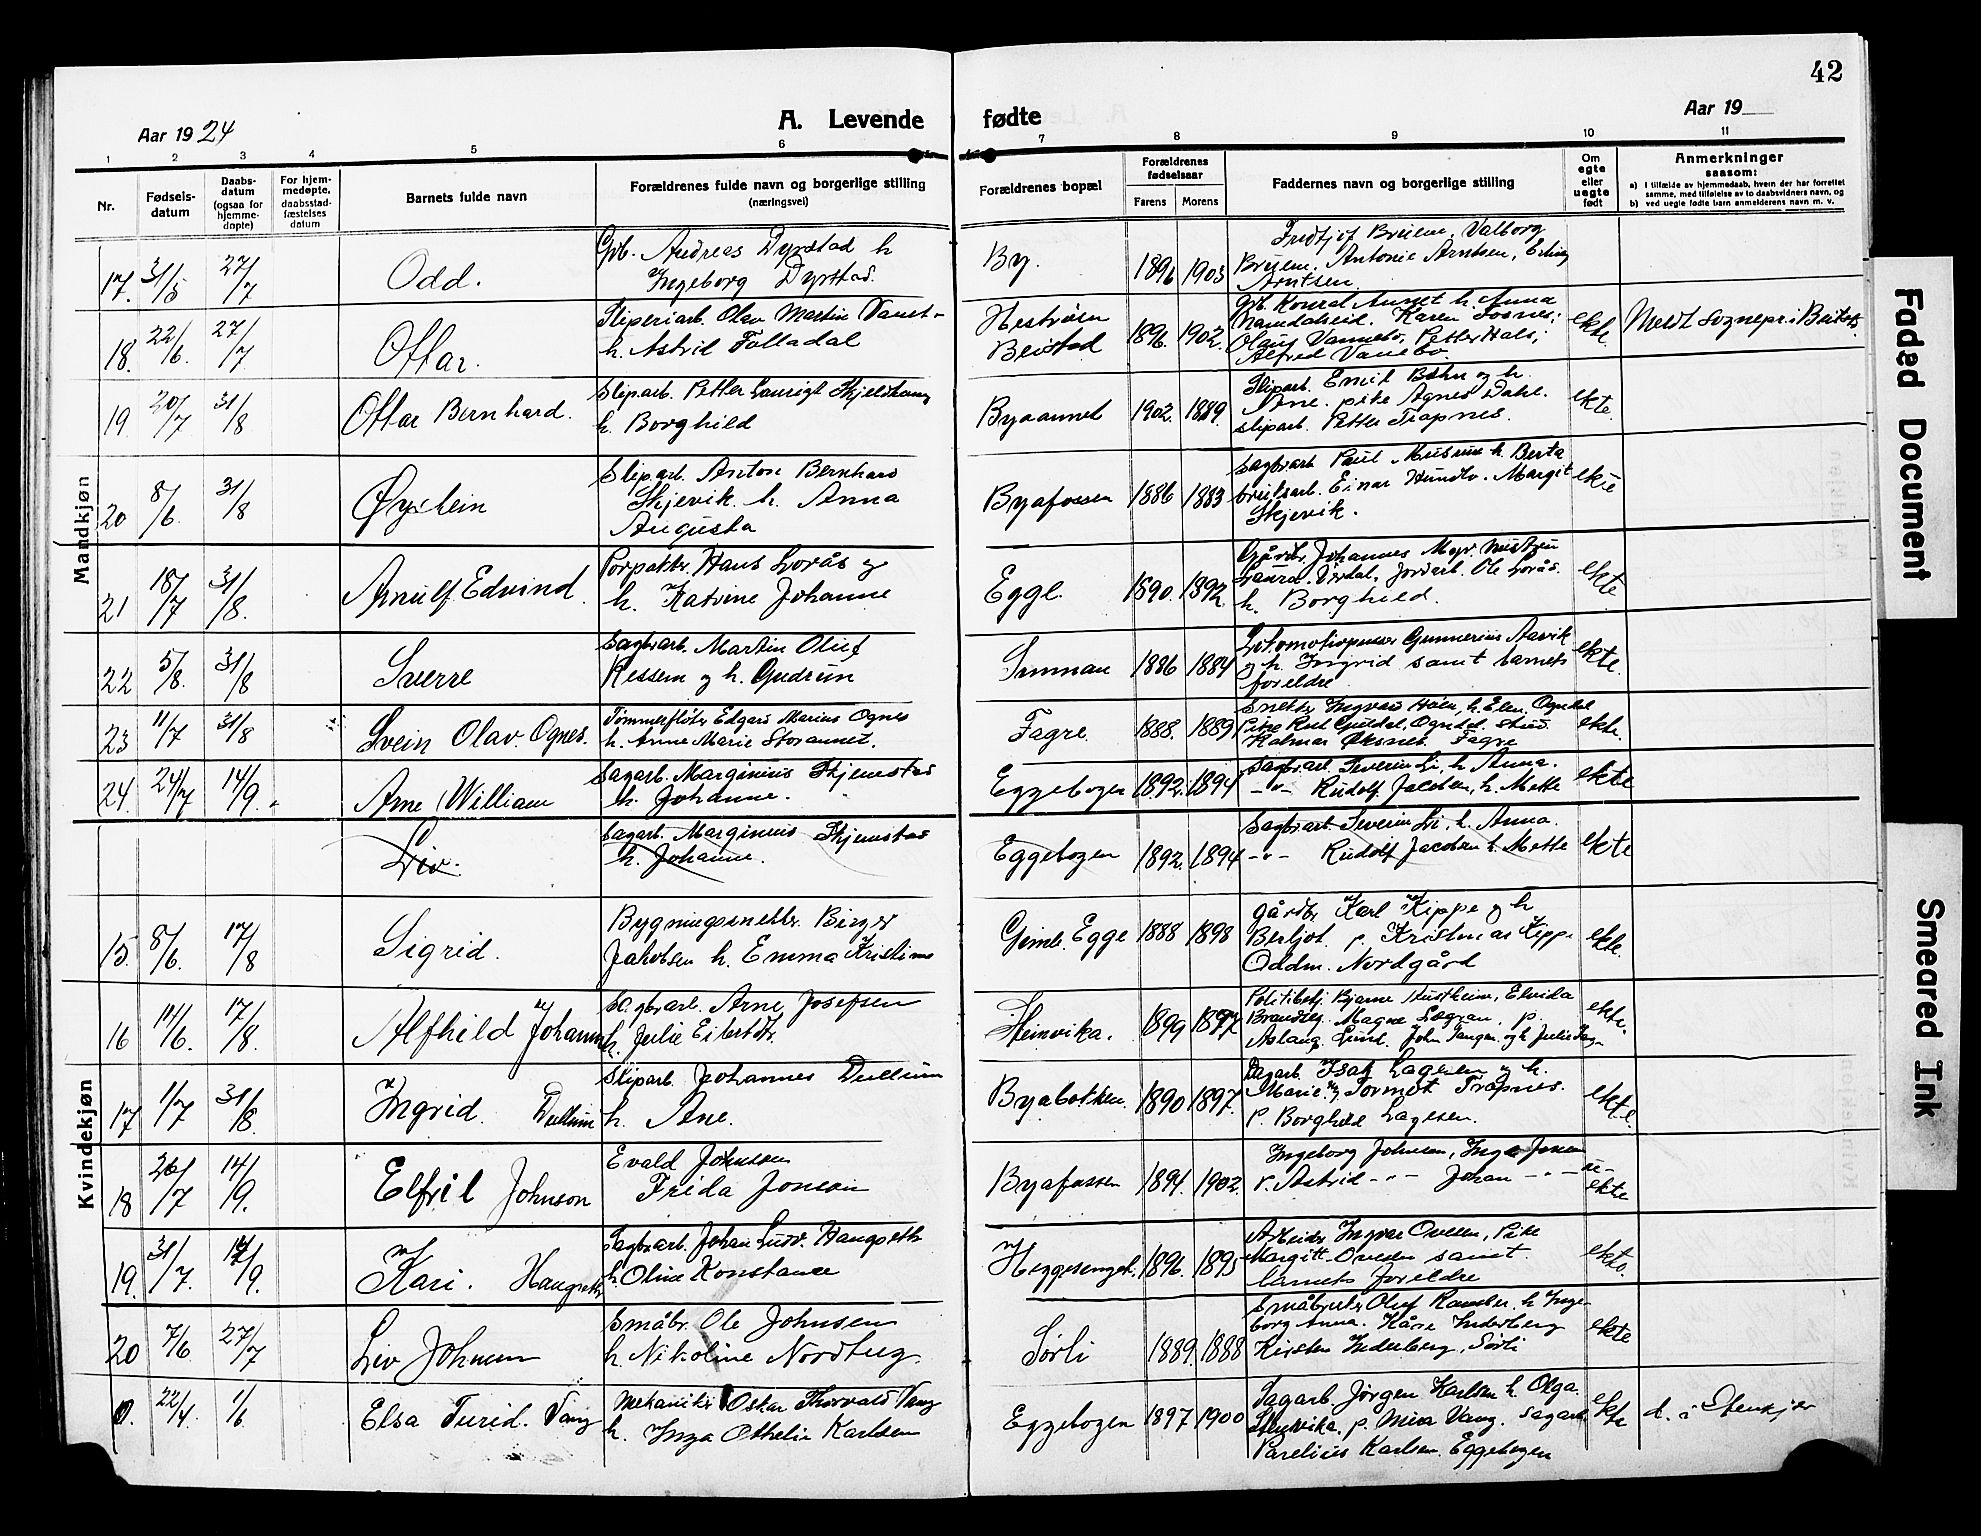 42
Aar 1924
A. Levende fødte
Aar 19
1 2 3 4 5 6 7 8 9 10 11
Nr.
Fødsels-
datum
Daabs-
datum
(ogsaa for
hjemme-
døpte)
For hjem-
medøpte,
daabsstad-
fæstelses
datum
Barnets fulde navn
Forældrenes fulde navn og borgerlige stilling
(næringsvei)
Forældrenes bopæl
Forældrenes
fødselsaar
Farens
Morens
Faddernes navn og borgerlig stilling
Om
egte
eller
uegte
født
Anmerkninger
saasom:
a) I tilfælde av hjemmedaab, hvem der har forrettet
samme, med tilføielse av to daabsvidners navn, og
b) ved uegte fødte barn anmelderens navn m. v.
Mandkjøn
17. 31/5 27/7 Odd.
Gb. Andreas Dyrstad h
Ingeborg Dyrstad.
By. 1896 1903
Fridtjof Bruem, Valborg
Bruem, Antonie Arntsen, Erling
Arntsen
18. 22/6 27/7 Ottar.
Sliperiarb. Olav Martin Vanet-
h. Astrid Folladal
Beistad 1896 1902
Gb. Konrad Aunet h. Anna
Namdalseid. Karen Fosnes;
Olaus Vannebo, Petter Hals;
Alfred Vanebo.
ekte
Meldt sognepr. i Beitst.
19. 20/7 31/8 Ottar Bernhard.
Sliparb. Petter Laurigt
h. Borghild
Byaaunet 1902. 1889.
Sliparb. Emil Bohn og h.
Arne. pike Agnes Dahl.
sliparb. Petter Trapnes.
ekte.
20 8/6. 31/8 Øystein
Sliparb. Anton Bernhard
Skjevik. h. Anna
Augusta
Byafossen 1886 1883
Sagbrarb Paul Musum h. Berta
bruksarb. Einar Hundlo. Margit
Skjevik.
ekte
21 18/7 31/8. Arnulf Edvind
Porpakter. Hans Lorås og
h. Katrine Johanne
Egge. 1890. 1892.
Gårdbr. Johannes
Laura. Jordarb. Ole Lorås.
h. Borghild.
ekte
22 5/8. 31/8 Sverre
Sagbrarb. Martin Oluf
Ressem og h. Gudrun
Sunnan 1886 1884
Lokomotivpusser Gunnerius Aasvik
og h. Ingrid samt barnets
foreldre
ekte.
23 11/7 31/8 Svein Olav. Ognes.
Tømmerfløter Edgard Marius Ognes
h. Anne Marie Storaunet.
Fagre. 1888. 1889
Snekker Ingvard h. Elen, Ogndal
Ogndal. stud.
Kalmar Øksnes Fagre
ekte.
24. 24/7 14/9. Arne William
Sagarb. Marginius Skjemstad
h. Johanne.
Eggebogen 1892. 1894
Sagbrarb. Severin Li, h. Anna.
-"- Rudolf Jacobsen, h. Mette
ekte
Liv.
Sagarb. Marginius Skjemstad
h. Johanne.
Eggebogen 1892. 1894
Sagbrarb Severin Li, h. Anna.
-"- Rudolf Jacobsen h. Mette
ekte
Kvindekjøn
15. 8/6. 17/8 Sigrid.
Bygningssnekker. Birger
Jakobsen h. Emma Kristine
Egge 1888 1898
Gårdbr. Karl Kippe og h
Bergljot. p. Kristine Kippe
Oddm. Nordgård
ekte.
16 11/6. 17/8. Alfhild Johanne
Sagbrarb. Arne Josefsen
h. Julie
Steinvika. 1899 1897
Politibetj. Bjarne Austheim, Elvida
Brandseg. Magne Lægran, p.
Aslaug Lund.
ekte.
17 1/7 31/8. Ingrid. Dullum
Sliparb. Johannes Dullum
h. Ane.
Byabakken. 1890 1897.
Dagarb. Isak Lagesen og h.
Marie. Tormod Trapnes.
p. Borghild Lagesen.
ekte.
18 26/7 14/9. Elfrid Johnson
Evald Johnssen
Frida Jonson
Byafossen 1894. 1902.
Ingeborg Johnsen, Inga Jonsen
p. Astrid -"- Johan -"-
u-
ekte
19. 31/7. 14/9. Kari. Haugseth
Sagbrarb. Johan Ludv. Haugseth
h. Oline Konstance
Heggesenget. 1896. 1895
Arbeider Ingvar Ovesen, Pike
Margitt Ovesen samt
barnets foreldre
ekte.
20 7/6 27/7 Liv Johnsen
Småbr. Ole Johnsen
h. Nikoline Nordtug.
Sørli 1889. 1888
Småbruker Oluf Ramber. h Inge-
borg Anna. Kåre Inderberg
Kirsten Inderberg, Sørli
ekte
22/4. 1/6 Elsa Turid. Vang
Mekaniker Oskar Thorvald Vang
h. Inga Othelie Karlsen
Eggebogen 1897 1900
Sagarb. Jørgen Karlsen h. Olga.
p. Mina Vang. Sagarb.
Parelius Karlsen. Eggebogen
ekte
d. i Stenkjer
Faded Document
Smeared Ink